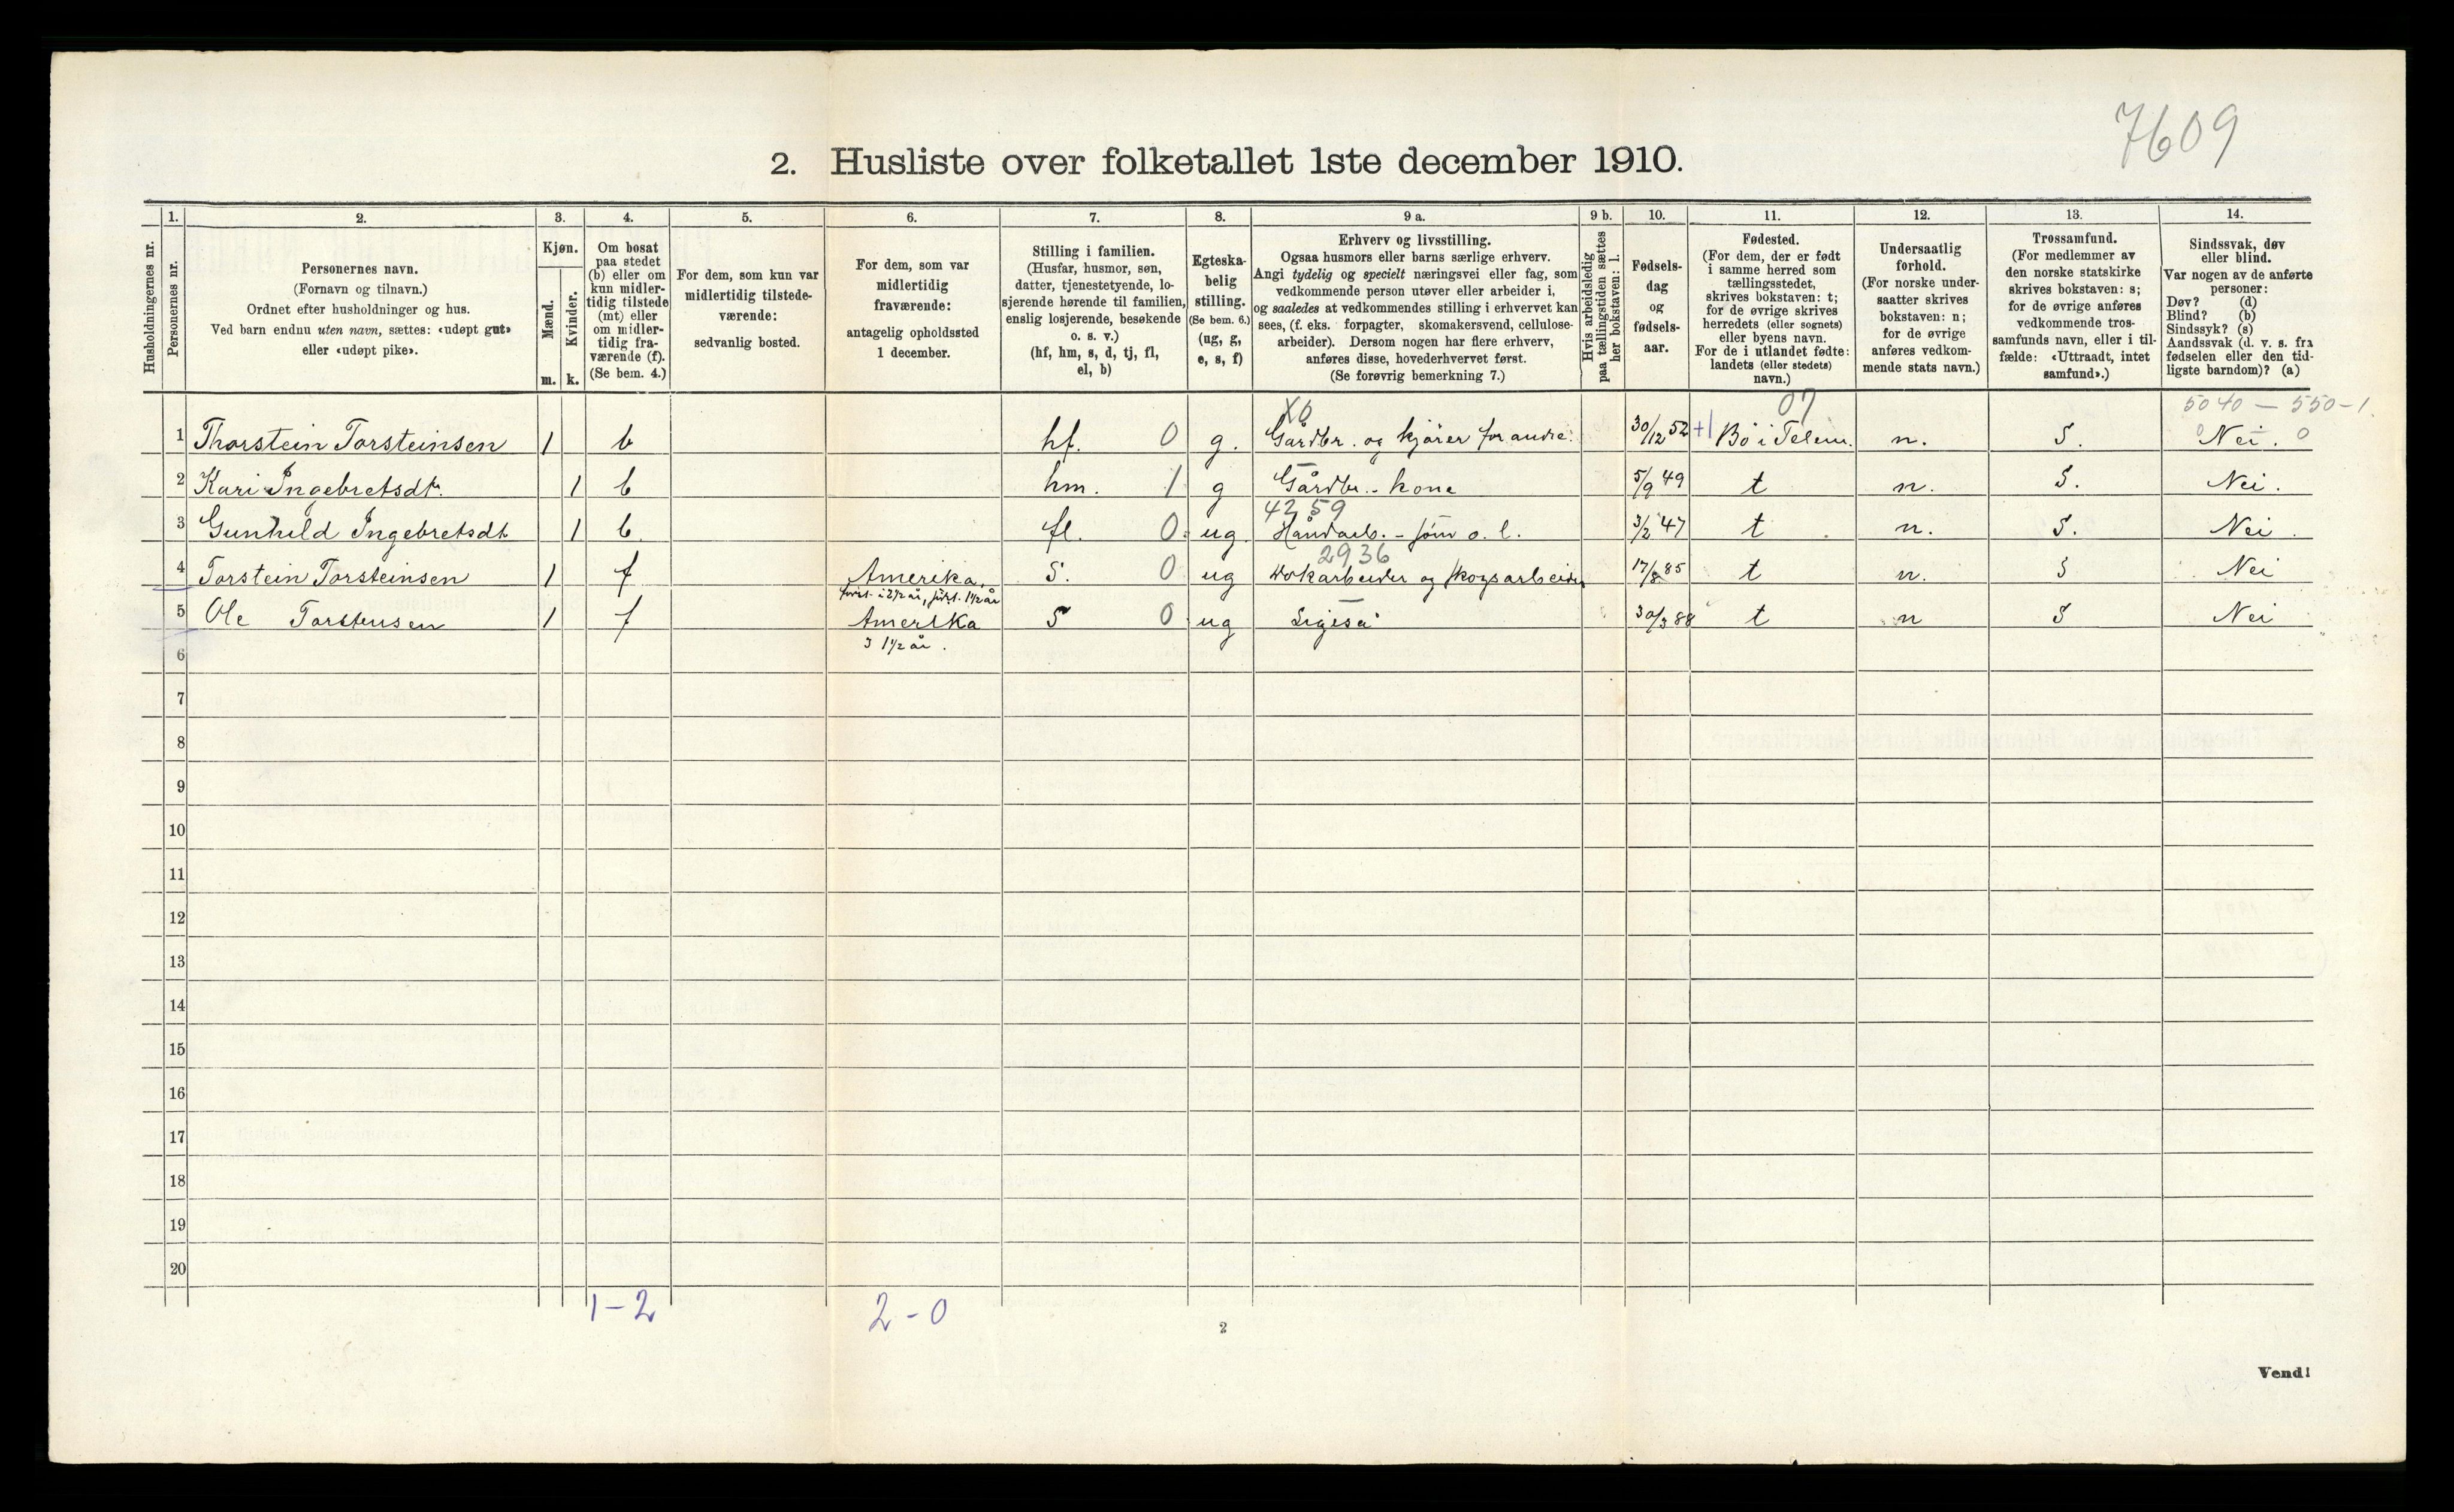 7609
2. Husliste over folketallet 1ste december 1910.
Husholdningernes nr.
1. Personernes nr.
2. Personernes navn.
(Fornavn og tilnavn.)
Ordnet efter husholdninger og hus.
Ved barn endnu uten navn, sættes: «udøpt gut»
eller «udøpt pike».
3. Kjøn.
Mænd. m.
Kvinder. k.
4. Om bosat
paa stedet
(b) eller om
kun midler-
tidig tilstede
(mt) eller
om midler-
tidig fra-
værende (f).
(Se bem. 4.)
5. For dem, som kun var
midlertidig tilstede-
værende:
sedvanlig bosted.
6. For dem, som var
midlertidig
fraværende:
antagelig opholdssted
1 december.
7. Stilling i familien.
(Husfar, husmor, søn,
datter, tjenestetyende, lo-
sjerende hørende til familien,
enslig losjerende, besøkende
o. s. v.)
(hf, hm, s, d, tj, fl,
el, b)
8. Egteska-
belig
stilling.
(Se bem. 6.)
(ug, g,
e, s, f)
9 a. Erhverv og livsstilling.
Ogsaa husmors eller barns særlige erhverv.
Angi tydelig og specielt næringsvei eller fag, som
vedkommende person utøver eller arbeider i,
og saaledes at vedkommendes stilling i erhvervet kan
sees, (f. eks. forpagter, skomakersvend, cellulose-
arbeider). Dersom nogen har flere erhverv,
anføres disse, hovederhvervet først.
(Se forøvrig bemerkning 7.)
9 b. Hvis arbeidsledig
paa tællingstiden sættes
her bokstaven: l.
10. Fødsels-
dag
og
fødsels-
aar.
11. Fødested.
(For dem, der er født
i samme herred som
tællingsstedet,
skrives bokstaven: t;
for de øvrige skrives
herredets (eller sognets)
eller byens navn.
For de i utlandet fødte:
landets (eller stedets)
navn.)
12. Undersaatlig
forhold.
(For norske under-
saatter skrives
bokstaven: n;
for de øvrige
anføres vedkom-
mende stats navn.)
13. Trossamfund.
(For medlemmer av
den norske statskirke
skrives bokstaven: s;
for de øvrige anføres
vedkommende tros-
samfunds navn, eller i til-
fælde: «Uttraadt, intet
samfund».)
14. Sindssvak, døv
eller blind.
Var nogen av de anførte
personer:
Døv? (d)
Blind? (b)
Sindssyk? (s)
Aandssvak (d. v. s. fra
fødselen eller den tid-
ligste barndom)? (a)
X6 07 5040 — 550-1.
1 Thorstein Torsteinsen 1 b hf. 0 g. Gårdbr. og kjører for andre. 30/12 52 +1 Bø i Telem. n. S. 0 Nei. 0
2 Kari Ingebretsdtr. 1 b hm. 1 g Gårdbr.- kone 5/9 49 t n. S. Nei.
42 59
3 Gunhild Ingebretsdt 1 b fl. 0 ug. Håndarb. - søm o. l. 3/2 47 t n. S. Nei.
2936
4 Torstein Torsteinsen 1 f Amerika. S. 0 ug Vokarbeider og skogsarbeider 17/8 85 t n. S Nei
i 2½ år, 1½ år
5 Ole Torstensen 1 f Amerika S 0 ug Ligeså 30/3 88 t n S Nei
I 1½ år.
6
7
8
9
10
11
12
13
14
15
16
17
18
19
20
1-2 2-0
2
Vend!